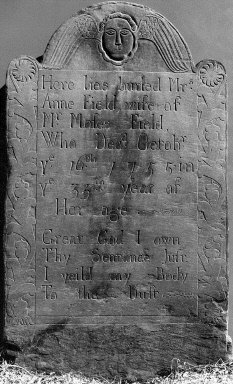 Here lies buried Mrs.
Anne Field wife of
Mr. Field
Who Decd. Octobr.
ye 16th 1775 in
ye 33d year of
Her age
Great God I own
Thy Sentance Just
I yeild my Body
To the Dust